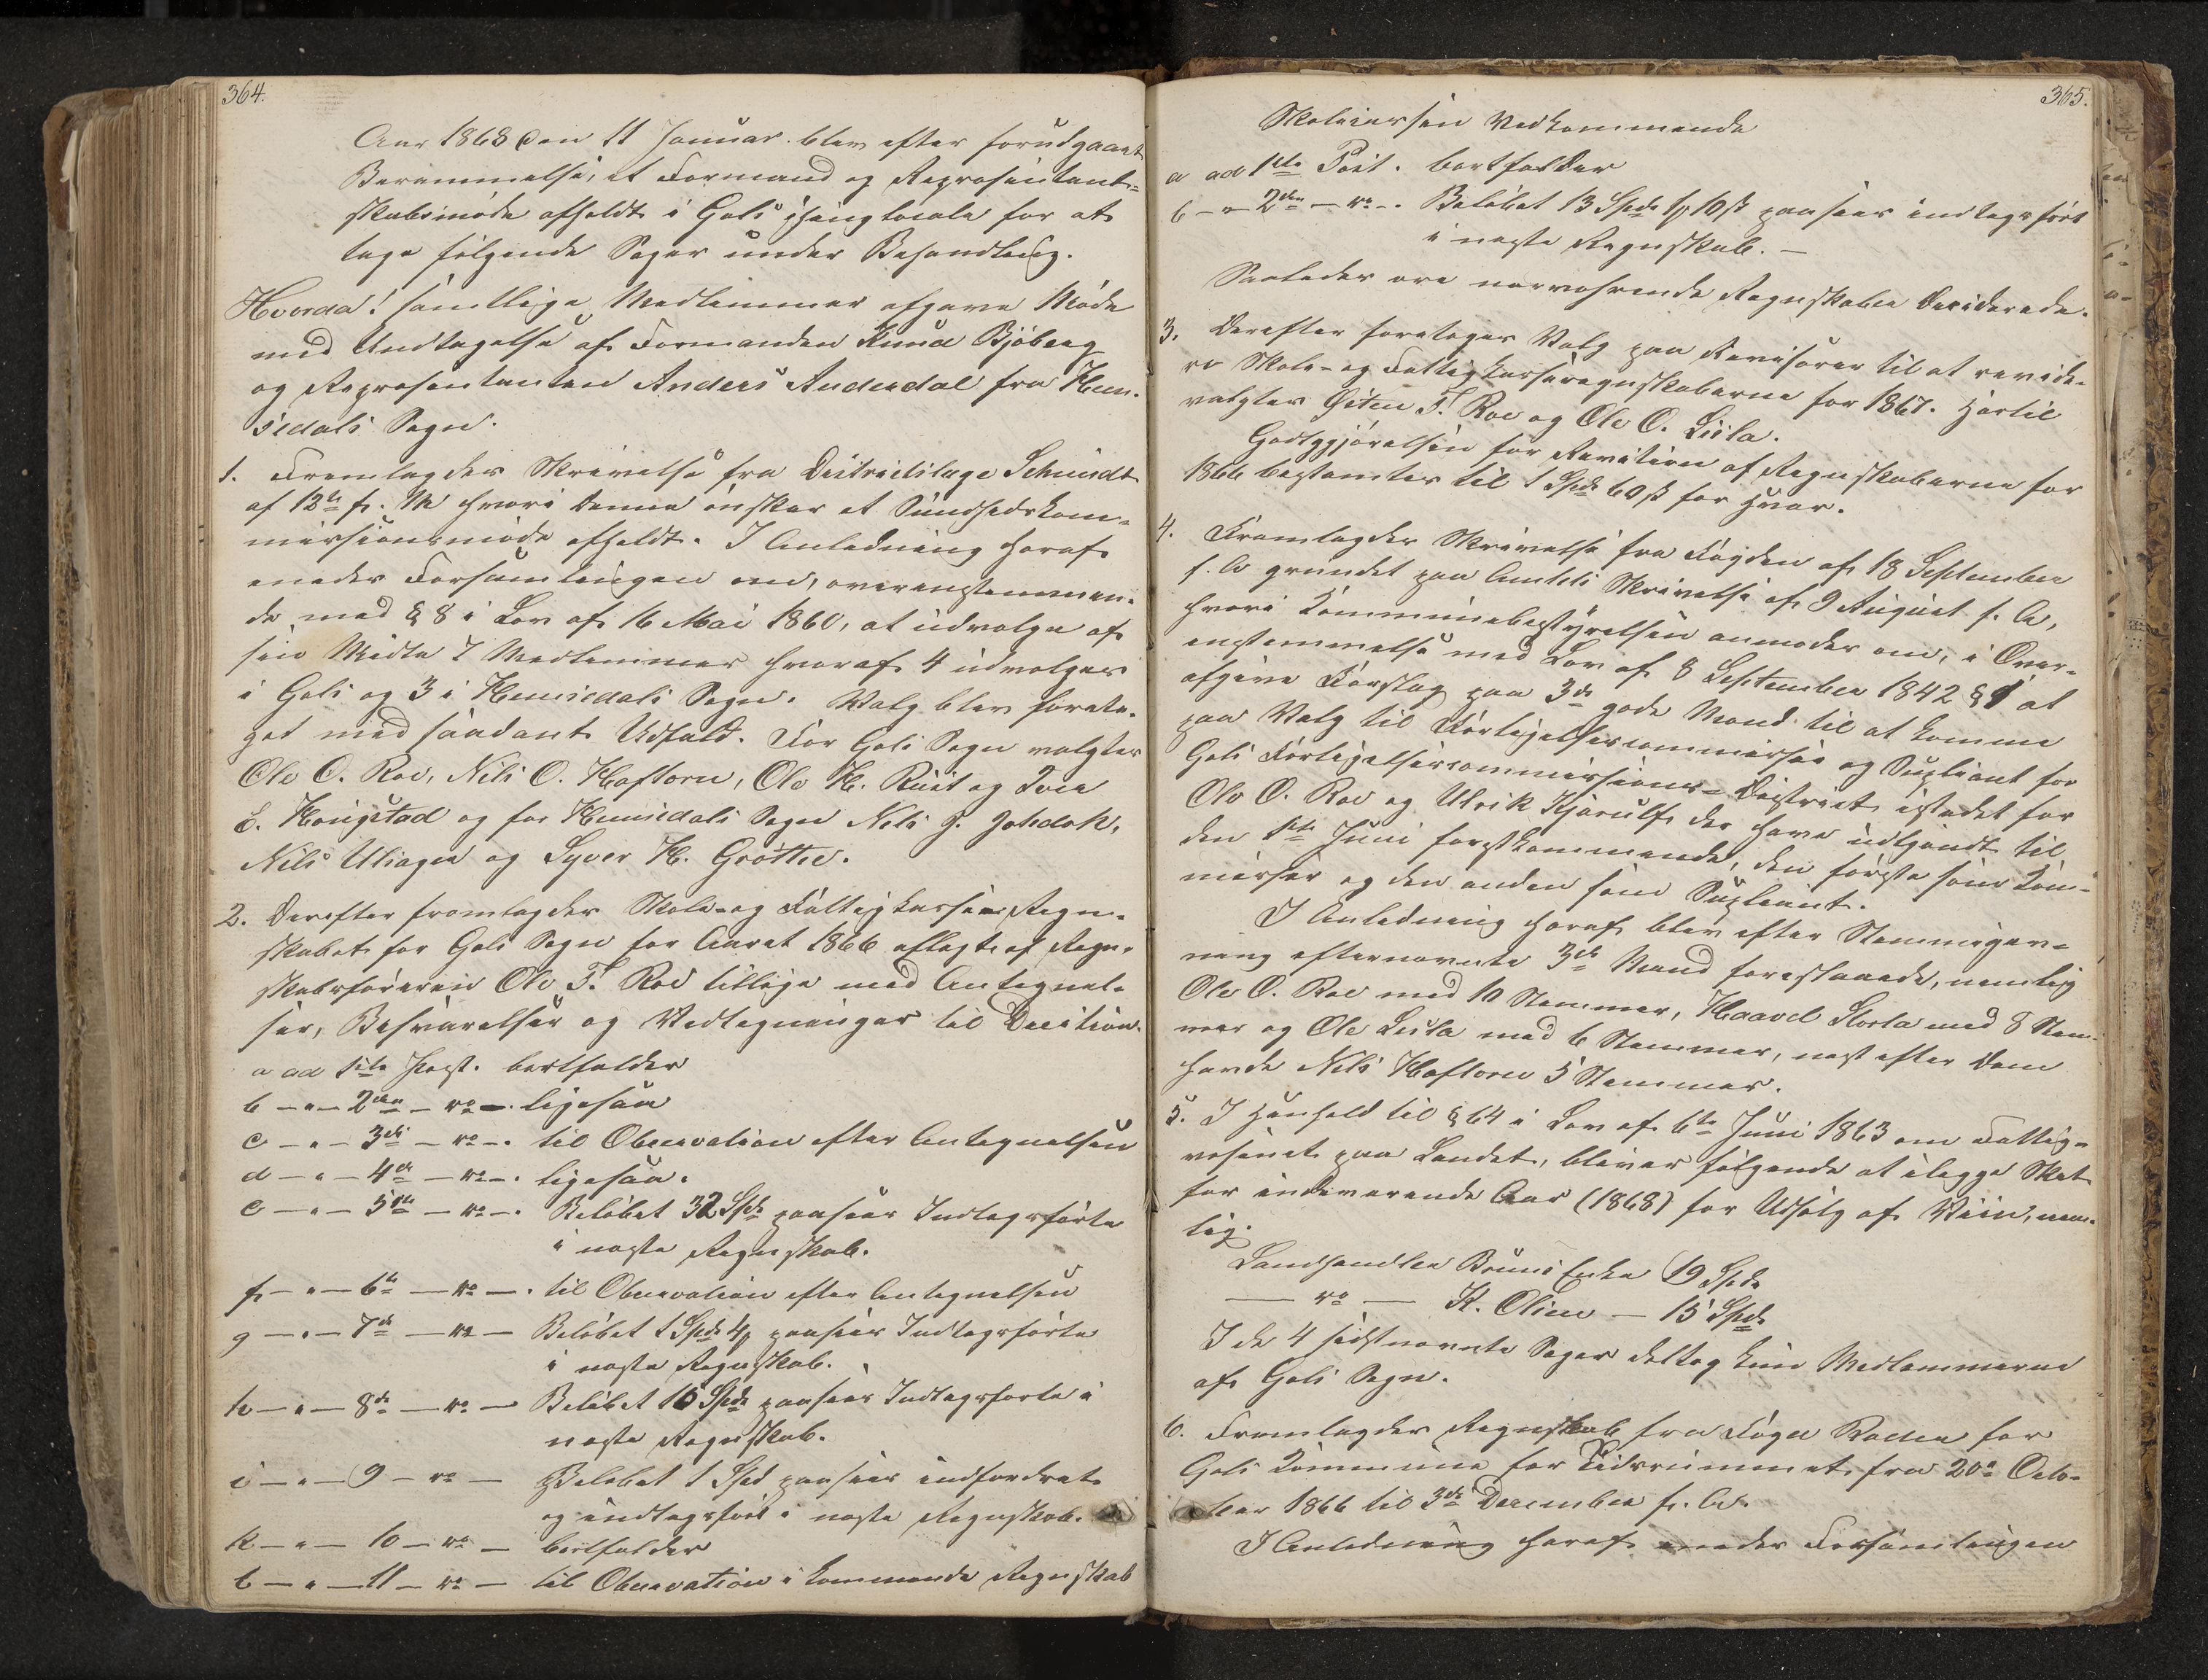 364.
Aar 1868 den 11 Januar blev efter forudgaaet
Berammelse, et Formand og Repræsentant-
skabsmøde afholdt i Gols Thinglocale for at
tage følgende Sager under Behandling.
Hvorda! samtlige Medlemmer afgave Møde
med Undtagelse af Formanden Knud Bjøberg
og Repræsentanten Anders Anderdal fra Hem-
sedals Sogn.
1. Fremlagdes Skrivelse fra Districtslæge Schmidt
af 12te f. M hvori denne ønsker et Sundhedskom-
missionsmøde afholdt. I Anledning heraf
enedes Forsamlingen om, overenstemmen-
de med § 8 i Lov af 16 Mai 1860, at udvælge af
sin Midte 7 Medlemmer hvoraf 4 udvælges
i Gols og 3 i Hemsedals Sogn. Valg blev foreta-
get med saadant Udfald. For Gols Sogn valgtes
Ole O. Roe, Nils O. Haftorn, Ole H. Rust og Iver
E. Haugstad og for Hemsedals Sogn Nils J.
Nils Ulsagen og Syver H. Grøtte.
2. Derefter fremlagdes Skole- og Fattigkasse Regn-
skabet for Gols Sogn for Aaret 1866 aflagt af Regn-
skabsføreren Ole T. Roe tillige med Antegnel-
ser, Besvarelser og Vedtegninger til Decision.
a ad 1ste Post. bortfalder
b — " — 2den — ro —. ligesaa
c — " — 3die — ro —. til Observation efter Antegnelsen
d — " — 4de — ro —. ligesaa.
e — " — 5te — ro —. Beløbet 32 Spd paasees Indtægtsførte
i næste Regnskab.
f — " — 6te — ro —. til Observation efter Antegnelsen
g — " — 7de — ro — Beløbet 1 Spd 4 paasees Indtægtsførte
i næste Regnskab.
h — " — 8de — ro — Beløbet 16 Spd paasees Indtægtsførte i
næste Regnskab.
i — " — 9 — ro — Beløbet 1 Spd paasees indfordret
og indtægtsført i næste Regnskab.
k — " — 10 — ro — bortfalder
l — " — 11 — ro — til Observation i kommende Regnskab
365.
Skolekassen Vedkommende
a ad 1ste Post. bortfalder
b — " — 2den — ro —. Beløbet 13 Spd 10 ß paasees indtægtsført
i næste Regnskab. —
Saaledes ere nærværende Regnskaber Deciderede.
3. Derefter foretoges Valg paa Revisorer til at revide-
re Skole- og Fattigkasseregnskaberne for 1867. Hertil
valgtes Østen T. Roe og Ole O. Liila.
Godtgjørelsen for Revision af Regnskaberne for
1866 bestemtes til 1 Spd 60 ß for Hver.
4. Fremlagdes Skrivelse fra Fogden af 18 September
f. A grundet paa Amtets Skrivelse af 9 August f. A,
hvori Kommunebestyrelsen anmodes om, i Over-
enstemmelse med Lov af 8 September 1842 § 1 at
afgive Forslag paa 3de gode Mænd til at komme
paa Valg til Forligelsescommissær og Supleant for
Gols Forligelsescommissions-District istedet for
Ole O. Roe og Ulrik Kjærulf der have udtjendt til
den 1ste Juni førstkommende, den første som Kom-
missær og den anden som Supleant.
I Anledning heraf blev efter Stemmegiv-
ning efternævnte 3de Mænd foreslaaede, nemlig
Ole O. Roe med 10 Stemmer, Haavel Storla med 8 Stem-
mer og Ole Liila med 6 Stemmer, næst efter dem
havde Nils Haftorn 5 Stemmer.
5. I Henhold til § 64 i Lov af 6te Juni 1863 om Fattig-
væsenet paa Landet, bliver følgende at ilegge Skat
for indeværende Aar (1868) for Udsalg af Viin, nem-
lig.
Landhandler Bruns Enke 19 Spd
— ro — K. Olsen — 15 Spd
I de 4 sidstnævnte Sager deltog kun Medlemmerne
af Gols Sogn.
6. Fremlagdes Regnskab fra Foged for
Gols Kommune for Tidsrummet fra 20de Octo-
ber 1866 til 3die December f. A.
I Anledning heraf enedes Forsamlingen